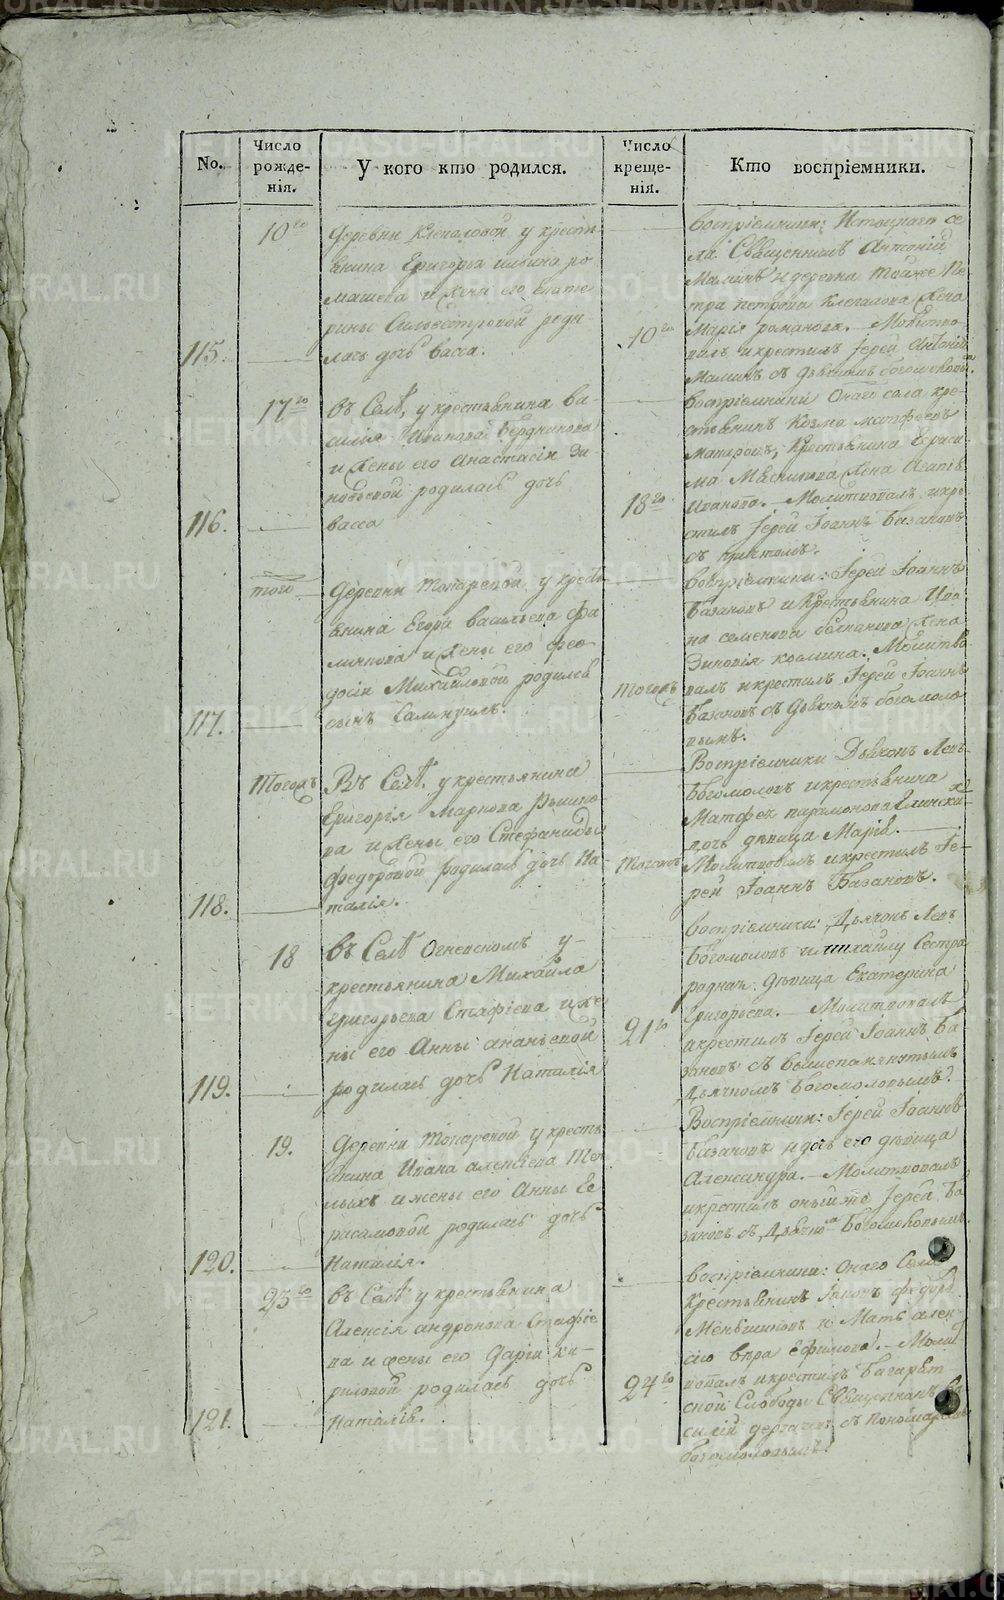 No.
Число рожде-нія.
У кого кто родился.
Число креще-нія.
Кто воспріемники.
115.
10го
Деревни Клепаловой у крестья
янина Григорья
и жены его Екате
рины Сильвестровой роди
лась дочь Васса.
10го
Воспріемники: Истоцкаго се
ла Священникъ Антоній
Маминъ и деревни тойже Пе
тра петрова Клепалова жена
Марія романова. Молитво
валъ и крестилъ Іерей Антоній
Маминъ съ дьякомъ богомоловымъ.
116.
17го
въ Селѣ, у крестьянина Ва-
силія Иванова Бердникова
и жены его Анастасіи Зи
новьевой родилась дочь
Васса
18го
Воспріемники Онаго села кре-
стьянинъ Козма матфеевъ
крестьянина Гераси
ма жена Агапія
Иванова. Молитвовалъ и кре
стилъ Іерей Іоаннъ Базановъ
съ причтомъ.
117.
того
Деревни Токаревой у кресть
янина Егора Васильева
и жены его Фео
досіи Михайловой родился
сынъ Самануилъ.
тогожъ
Воспріемники: Іерей Іоаннъ
Базановъ и крестьянина Ива
на семенова жена
Зиновія козмина. Молитво
валъ и крестилъ Іерей Іоаннъ
Базановъ съ дьячкомъ богомоло
вымъ.
118.
Тогожъ
Въ Селѣ, у крестьянина
Григорія Маркова
ва и жены его Стефаниды
Федоровой родилась дочь На
талія.
Тогожъ
Воспріемники Дьяконъ Левъ
Богомоловъ и крестьянина
Матфея парамонова
дочь дѣвица Марія.
Молитвовалъ и крестилъ Іе-
рей Іоаннъ Базановъ.
119.
18
въ Селѣ Огневскомъ у
крестьянина Михайла
григорьева Стафіева и же
ны его Анны ананьевой
родилась дочь Наталія
21го
Воспріемники: Дьячокъ Левъ
Богомоловъ и михайлу Сестра
родная дѣвица Екатерина
Григорьева. Молитвовалъ
и крестилъ Іерей Іоаннъ Ба
зановъ съ вышепомянутымъ
Дьячкомъ Богомоловымъ.
120.
19.
Деревни Токаревой у кресть
янина Ивана алексіева
и жены его Анны Ге
расимовой родилась дочь
Наталія.
Воспріемники: Іерей Іоаннъ
Базановъ и дочь его дѣвица
Александра. Молитвовалъ
и крестилъ онъ же Іерей Ба
зановъ съ Дьячкомъ Богомоловымъ.
121.
23го
въ Селѣ у крестьянина
Алексія андронова Стафіе
ва и жены его Даріи ки-
риловой родилась дочь
Наталія.
24го
Воспріемники: Онаго Села
Крестьянинъ Іаковъ федоровъ
Меньшиковъ и Мать алек
сію Вѣра Ефимова. Моли
твовалъ и крестилъ Багаряк
ской Слободы Священникъ Ва
силій съ пономаремъ
богомоловымъ.
METRIKI.GASO-URAL.RU